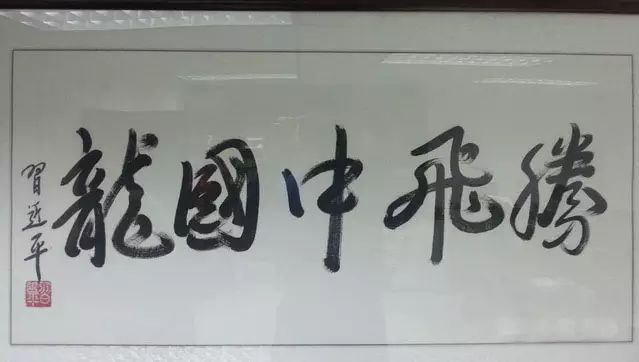 騰飛中國龍
習近平